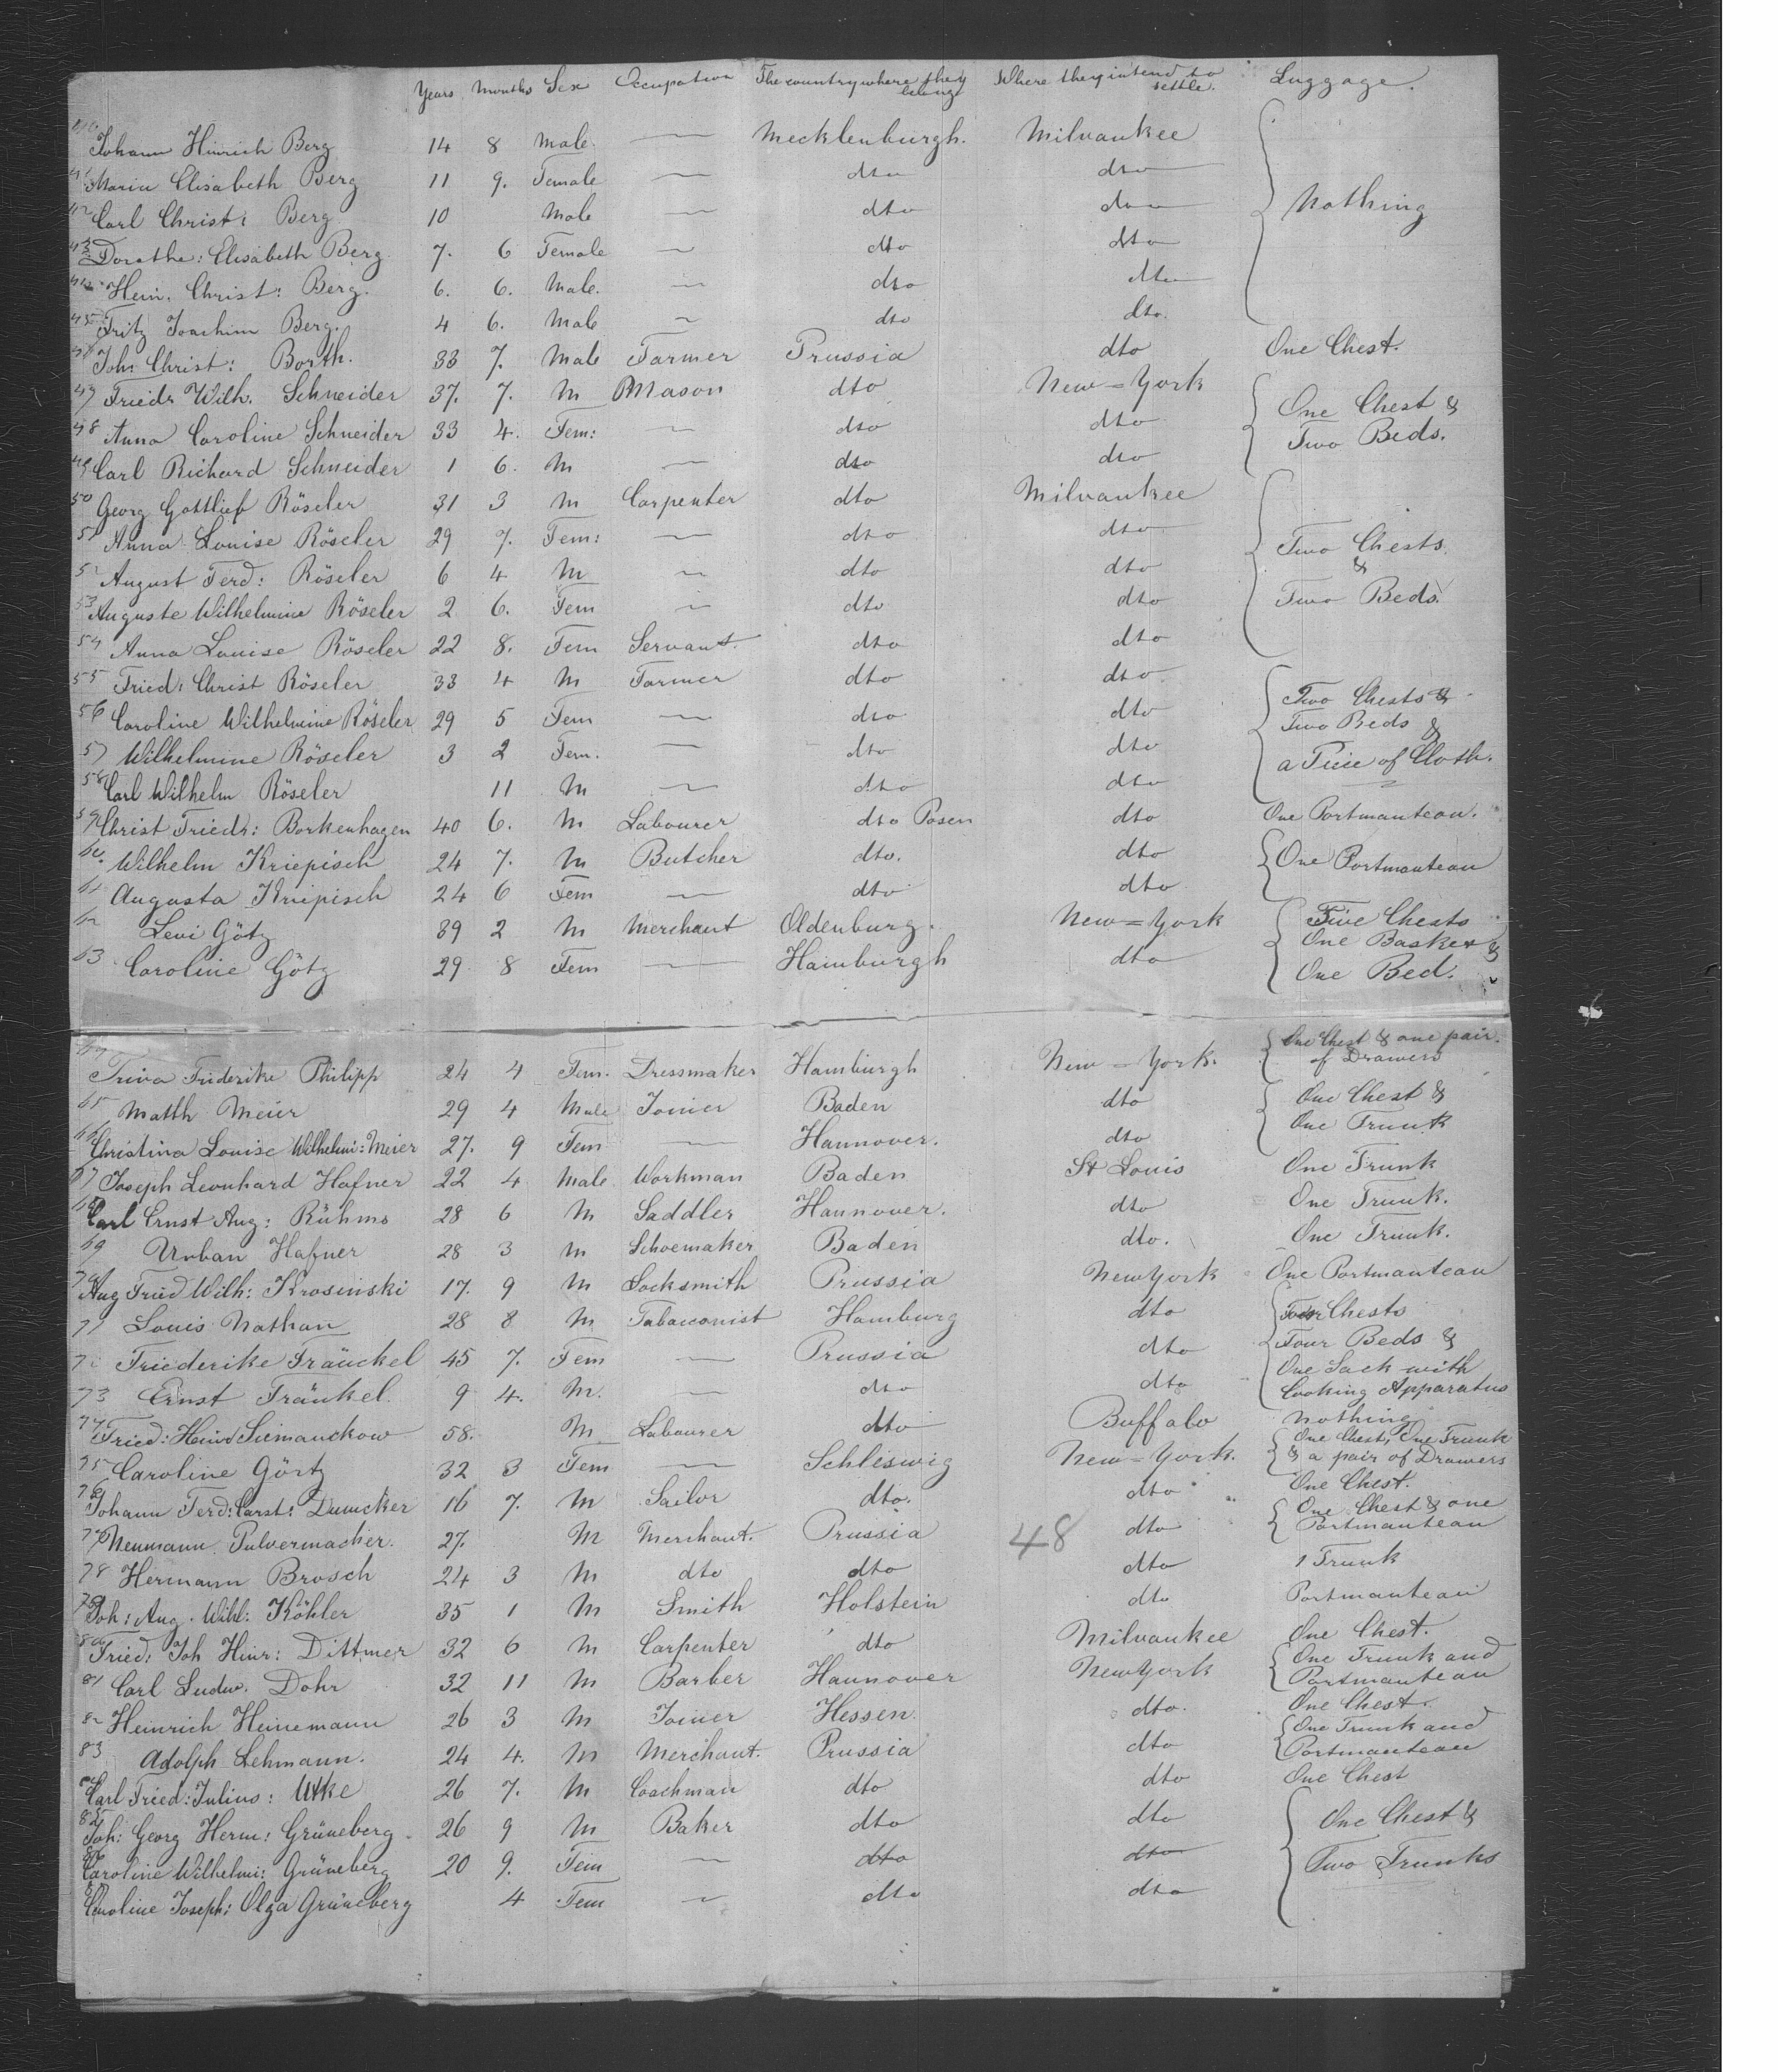 Years Months Sex Occupation The country where they belong Where they intend to settle. Luggage.
40 Johann Hinrich Berg 14 8 Male — Mecklenburgh. Milvaukee
41 Maria Elisabeth Berg 11 9. Female — dto dto
42 Carl Christ: Berg 10 Male — dto dto Nothing
43 Dorothe: Elisabeth Berg 7. 6 Female — dto dto
44 Hein. Christ: Berg. 6. 6. Male. — dto dto
45 Fritz Joachim Berg. 4 6. Male — dto dto.
46 Joh: Christ: Borth. 33 7. Male Farmer Prussia dto One Chest.
47 Friedr Wilh. Schneider 37. 7. M Mason dto New=York One Chest &
48 Anna Caroline Schneider 33 4. Fem: — dto dto Two Beds.
49 Carl Richard Schneider 1 6. M — dto dto
50 Georg Gottlieb Röseler 31 3 M Carpenter dto Milvaukee
51 Anna Louise Röseler 29 7. Fem: — dto dto Two Chests
52 August Ferd: Röseler 6 4 M — dto dto &
53 Auguste Wilhelmine Röseler 2 6. Fem — dto dto Two Beds.
54 Anna Louise Röseler 22 8. Fem Servant. dto dto
55 Fried: Christ Röseler 33 4 M Farmer dto dto Two Chests &
56 Caroline Wilhelmine Röseler 29 5 Fem — dto dto Two Beds &
57 Wilhelmine Röseler 3 2 Fem. — dto dto a Piese of Cloth.
58 Carl Wilhelm Röseler 11 M — dto dto
59 Christ Friedr: Borkenhagen 40 6. M Labourer dto Posen dto One Portmanteau.
60. Wilhelm Kriepisch 24 7. M Butcher dto. dto One Portmanteau
61 Augusta Kriepisch 24 6 Fem — dto dto
62 Levi Götz 39 2 M Merchant Oldenburg. New=York Five Chests One Basket &
63 Caroline Götz 29 8 Fem — Hamburgh dto One Bed.
64 Trina Friderike Philipp 24 4 Fem. Dressmaker Hamburgh New=York. One Chest & one pair. of Drawers
65 Matth Meier 29 4 Male Joiner Baden dto One Chest &
66 Christina Louise Wilhelmi: Meier 27. 9 Fem — Hannover. dto One Trunk
67 Joseph Leonhard Hafner 22 4 Male Workman Baden St Louis One Trunk
68 Carl Ernst Aug: Rühms 28 6 M Saddler Hannover. dto One Trunk.
69 Urban Hafner 28 3 M Schoemaker Baden dto. One Trunk.
70 Aug Fried Wilh: Krosinski 17. 9 M Locksmith Prussia New York One Portmanteau
71 Louis Nathan 28 8 M Tabacconist Hamburg dto Four Chests
72 Friederike Fränckel 45 7. Fem — Prussia dto Four Beds &
73 Ernst Fränkel. 9 4. M. — dto dto One Sack with Cooking Apparatus
74 Fried: Heinr Siemanckow 58. M Labourer dto Buffalo Nothing
75 Caroline Görtz 32 3 Fem — Schleswig New=York. One Chest, One Trunk & a pair of Drawers
76 Johann Ferd: Carst: Duncker 16 7. M Sailor dto. dto One Chest.
77 Neumann Pulvermacher. 27. M Merchant. Prussia 48 dto One Chest & one Portmanteau
78 Hermann Brosch 24 3 M dto dto dto 1 Trunk
79 Joh: Aug. Wilh: Köhler 35 1 M Smith Holstein dto Portmanteau
80 Fried: Joh Hinr: Dittmer 32 6 M Carpenter dto Milvaukee One Chest.
81 Carl Ludw. Dohr 32 11 M Barber Hannover New York One Trunk and Portmanteau
82 Heinrich Heinemann 26 3 M Joiner Hessen. dto. One Chest.
83 Adolph Lehmann. 24 4. M Merchant. Prussia dto One Trunk and Portmanteau
Carl Fried: Julius: Utke 26 7. M Coachman dto dto One Chest
85 Joh: Georg Herm: Grüneberg. 26 9 M Baker dto dto One Chest &
Caroline Wilhelmi: Grüneberg 20 9. Fem — dto dto Two Trunks
Caroline Joseph: Olga Grüneberg 4 Fem — dto dto